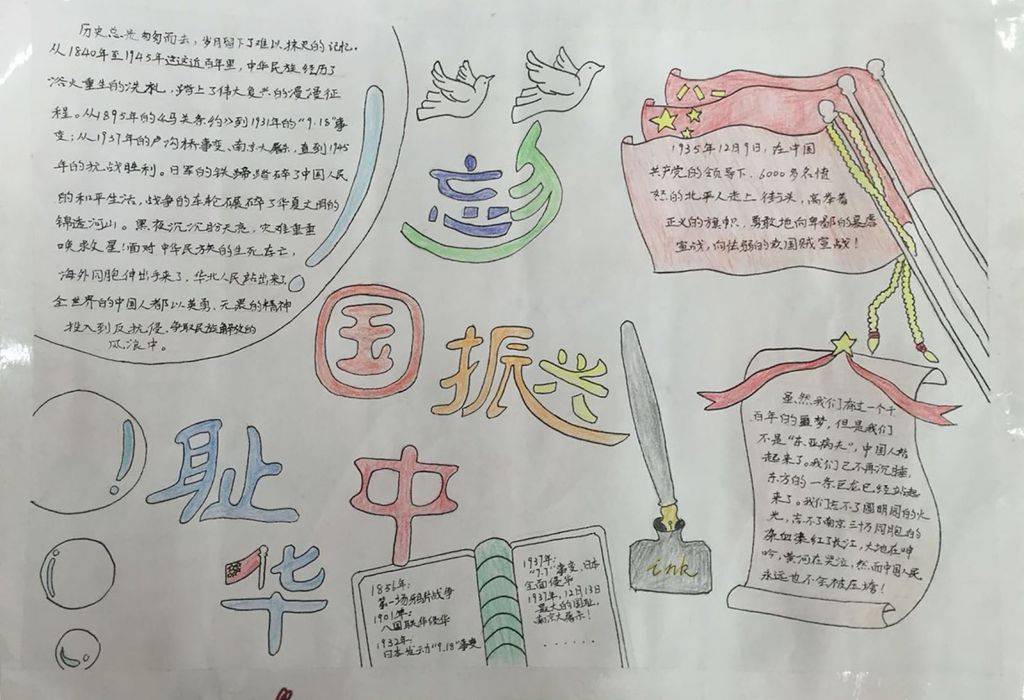 历史总是匆匆而去，岁月留下了难以抹灭的记忆。
从1840年至1945年这这近百年里，中华民族经历了
浴火重生的洗礼，踏上了伟大复兴的漫漫征
程。从1895年的《马关条约》到1931年的“9.18”事
变；从1937年的卢沟桥事变、南京大屠杀，直到1945
年的抗战胜利。日军的铁蹄踏碎了中国人民
的和平生活，战争的车轮碾碎了华夏文明的
锦绣河山。黑夜沉沉盼天亮，灾难重重
唤救星！面对中华民族的生死存亡，
海外同胞伸出手来了，华北人民站出来了
全世界的中国人都以英勇、无畏的精神
投入到反抗侵、争取民族解放的
风浪中。
勿忘
国
振兴
耻
中
华
1935年12月9日，在中国
共产党的领导下，6000多名愤
怒的北平人走上街头，高举着
正义的旗帜，勇敢地向卑鄙的暴虐
宣战，向怯弱的卖国贼宣战！
虽然我们有过一个千
百年的噩梦，但是我们
不是“东亚病夫”，中国人站
起来了。我们已不再沉睡，
东方的一条巨龙已经站起
来了。我们忘不了圆明园的火
光，忘不了南京三十万同胞的
血染红了长江，大地在呻
吟，黄河在哭泣，然而中国人民
永远也不会被压垮！
ink
1851年：
第一场鸦片战争
1901年：
八国联华侵华
1932年：
日本发动“9.18”事变
1937年：
“7.7”事变，日本
全面侵华
1937年，12月13日
最大的国耻，
南京大屠杀！
......